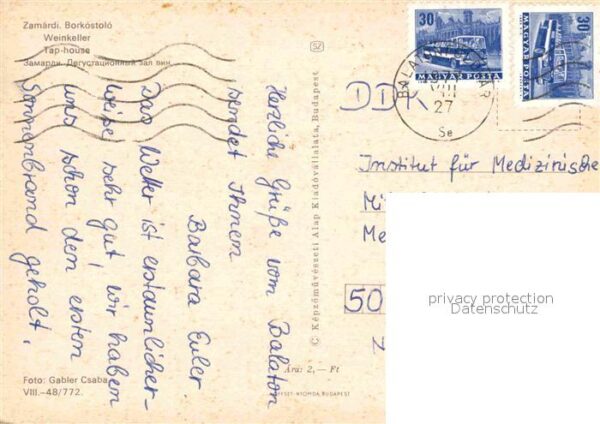 Zamárdi. Borkóstoló
Weinkeller
Tap-house
Замарди. Дегустационный зал вин.
Herzliche Grüße vom Balaton
sendet Ihnen
Barbara Euler
Das Wetter ist erstaunlicher-
weise sehr gut, wir haben
uns schon den ersten
Sonnenbrand geholt.
Foto: Gabler Csaba
VIII.-48/772.
SZ
© Képzőművészeti Alap Kiadóvállalata, Budapest
Ára: 2,– Ft
OFFSET-NYOMDA, BUDAPEST
30
MAGYAR POSTA
30
MAGYAR POSTA
27
Se
DDR
Institut für Medizinische
Mi
Me
50
privacy protection
Datenschutz